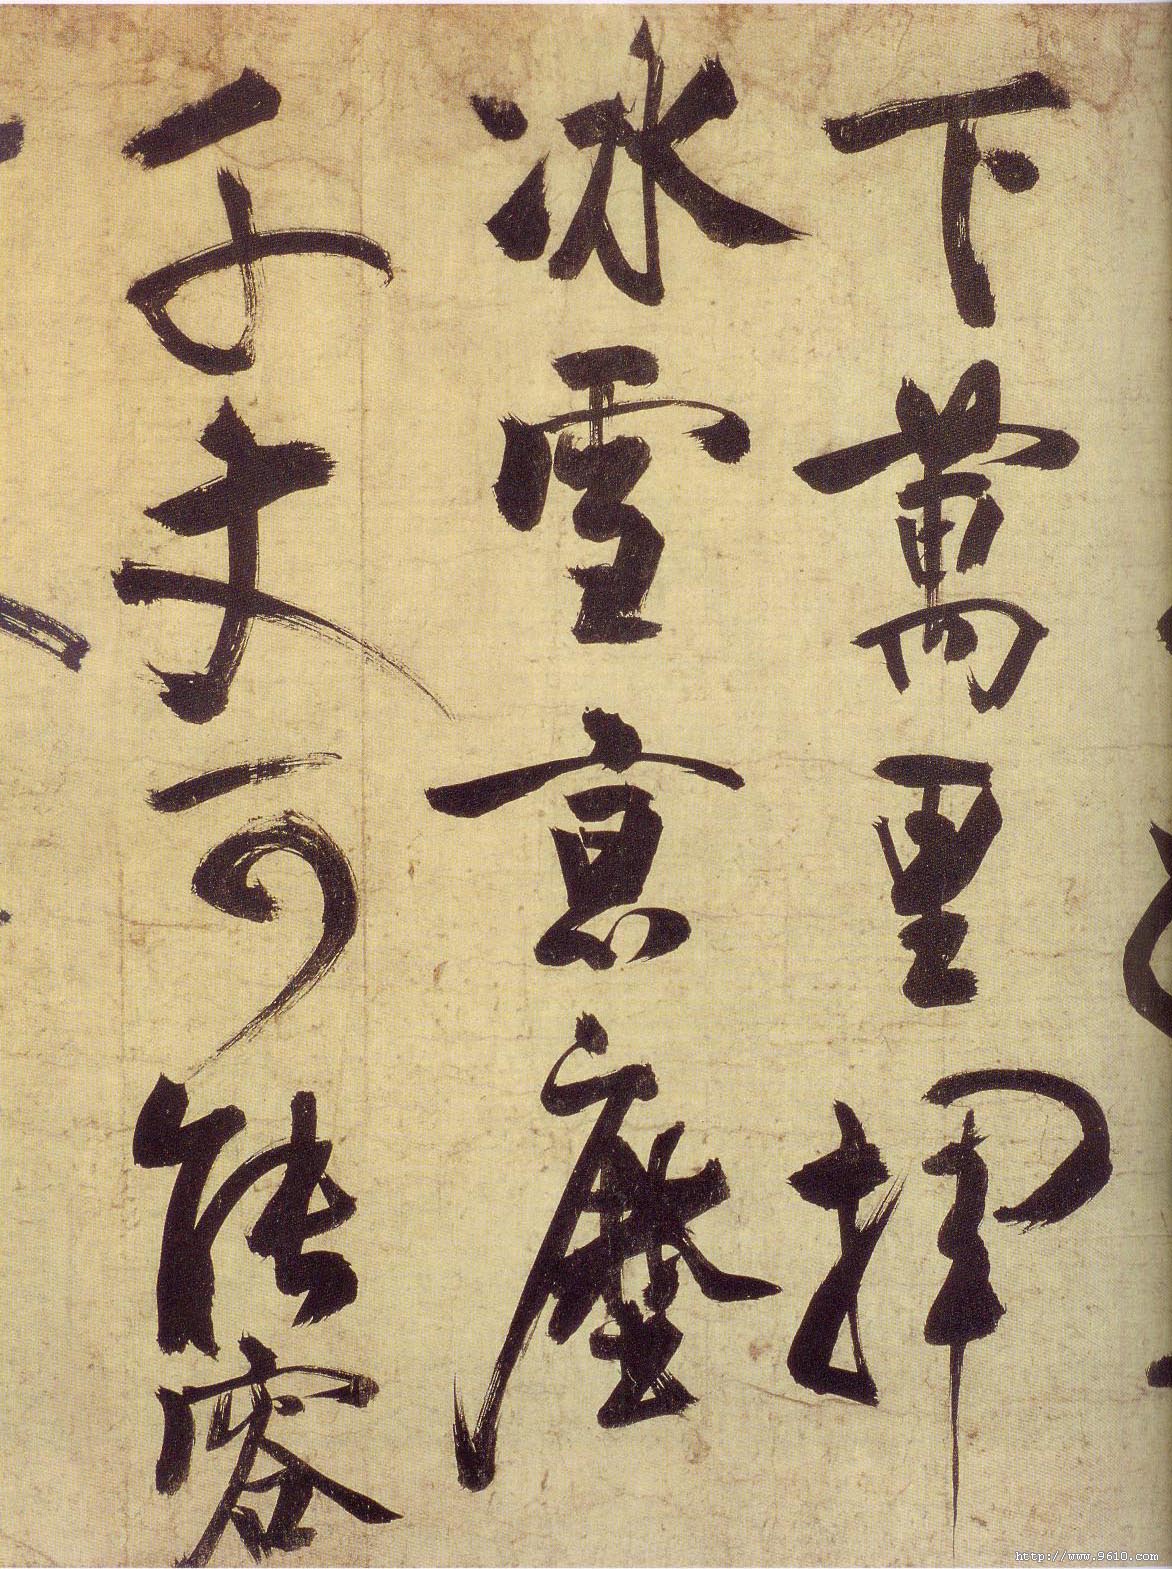 下萬里揮
冰雪京塵
千丈可能容
http://www.9610.com